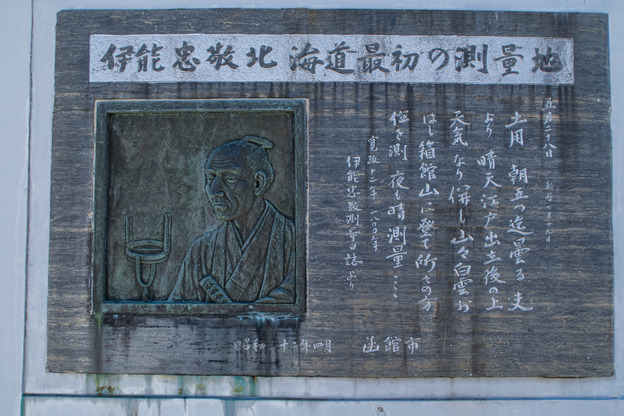 伊能忠敬北海道最初の測量地
五月二十八日 新暦七月十九日
土用 朝五つ迄曇る 夫
より晴天江戸出立後の上
天気なり 併し山々白雲お
ほし箱館山に登て所々の方
位を測 夜も晴測量…
寛政十二年 一八〇〇年
伊能忠敬測量日誌より
昭和三十二年四月 函館市